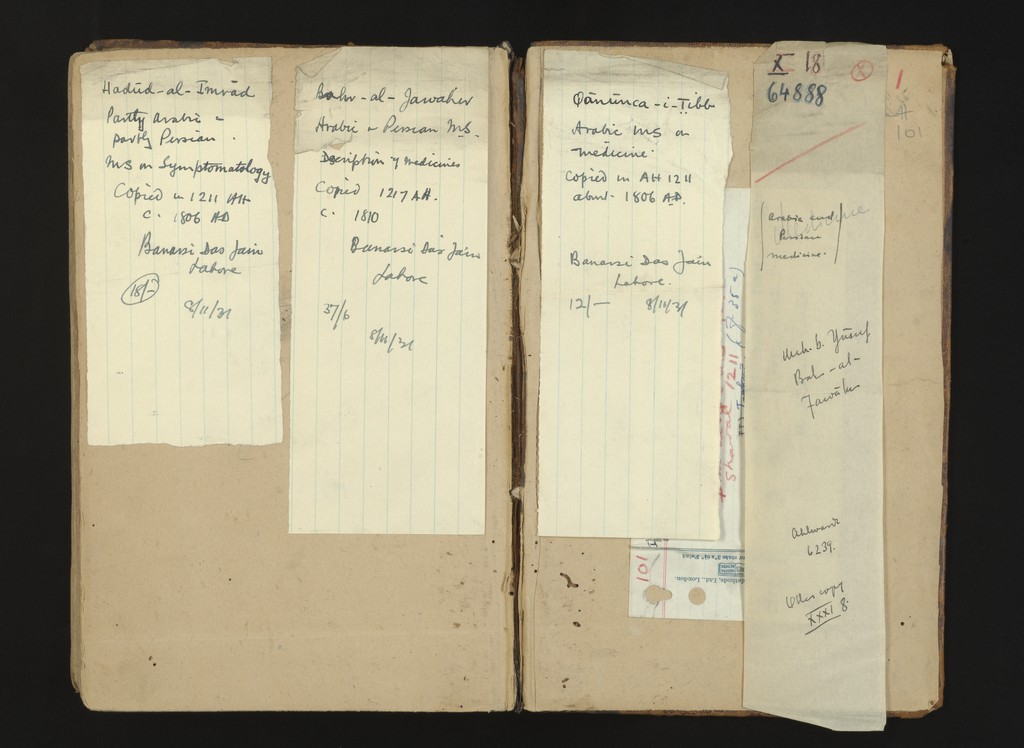 Hadūd-al-Imrād
Partly Arabic &
partly Persian.
MS on Symptomatology
Copied in 1211 AH
c. 1806 AD
Banarsi Das Jain
Lahore
18/-
8/11/31
Bahr-al-Jawaher
Arabic & Persian MS.
Description of medicines
Copied 1217 AH.
c. 1810
Banarsi Das Jain
Lahore
37/6
8/11/31
Qānūnca-i-Tibb
Arabic MS on
medicine.
Copied in AH 1211
about 1806 AD.
Banarsi Das Jain
Lahore.
12/-
8/11/31
Shawal 1211
101
X 18
X
64888
1,
101
Medicine
(Arabic and
Persian
medicine.)
Muh. b. Yūsuf
Bah-al-
Jawāhir
Ahlwardt
6239.
Other copy
XXXI 8.